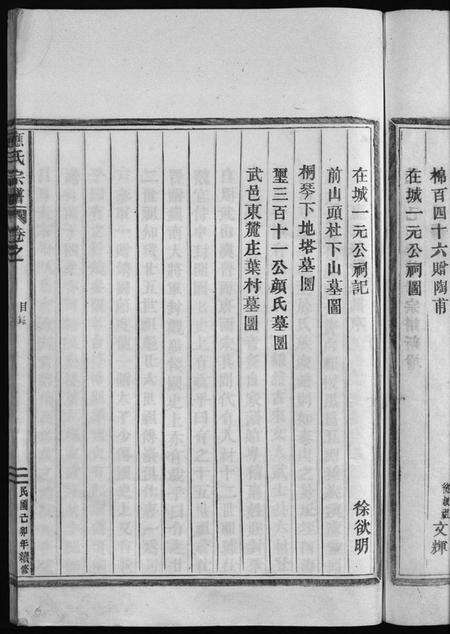 棉百四十六贈陶甫
文輝
在城一元公祠圖
在城一元公祠記
徐欲明
前山頭杜下山墓圖
桐琴下地塔墓圖
璽三百十一公顔氏墓圖
武邑東麓庄葉村墓圖
應氏宗譜
卷之一
目錄
民國己卯年續修